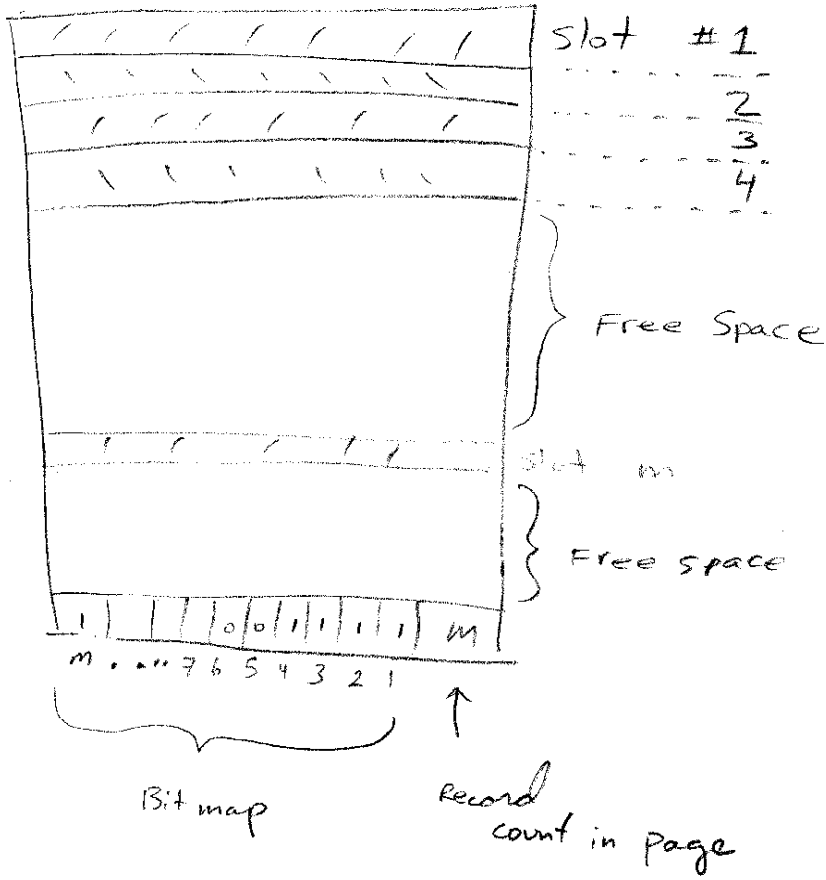 Slot # 1
2
3
4
Free Space
Slot m
Free space
1 0 0 1 1 1 1 m
m . . .. 7 6 5 4 3 2 1
Bitmap
Record
count in page